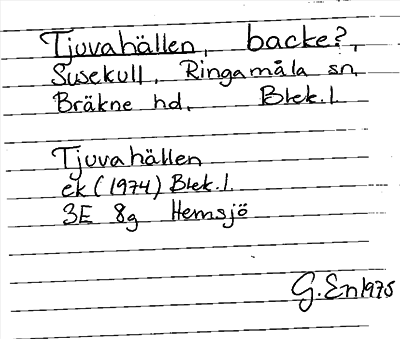 Tjuvahällen, backe?,
Susekull, Ringamåla sn,
Bräkne hd, Blek. l.
Tjuvahällen
ek (1974) Blek. l.
3E 8g Hemsjö
G. En 1975